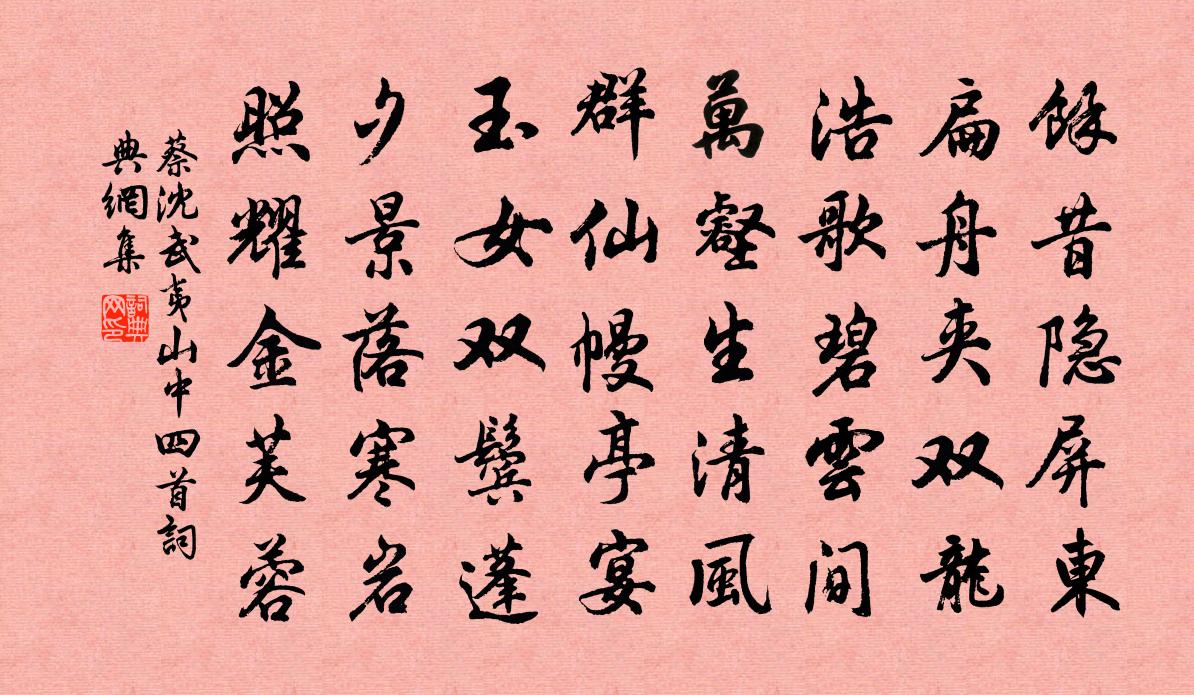 餘昔隐屏東
扁舟夹双龍
浩歌碧雲间
萬壑生清風
群仙幔亭宴
玉女双鬓蓬
夕景落寒岩
照耀金芙蓉
蔡沈武夷山中四首詞
典網集
詞典网印